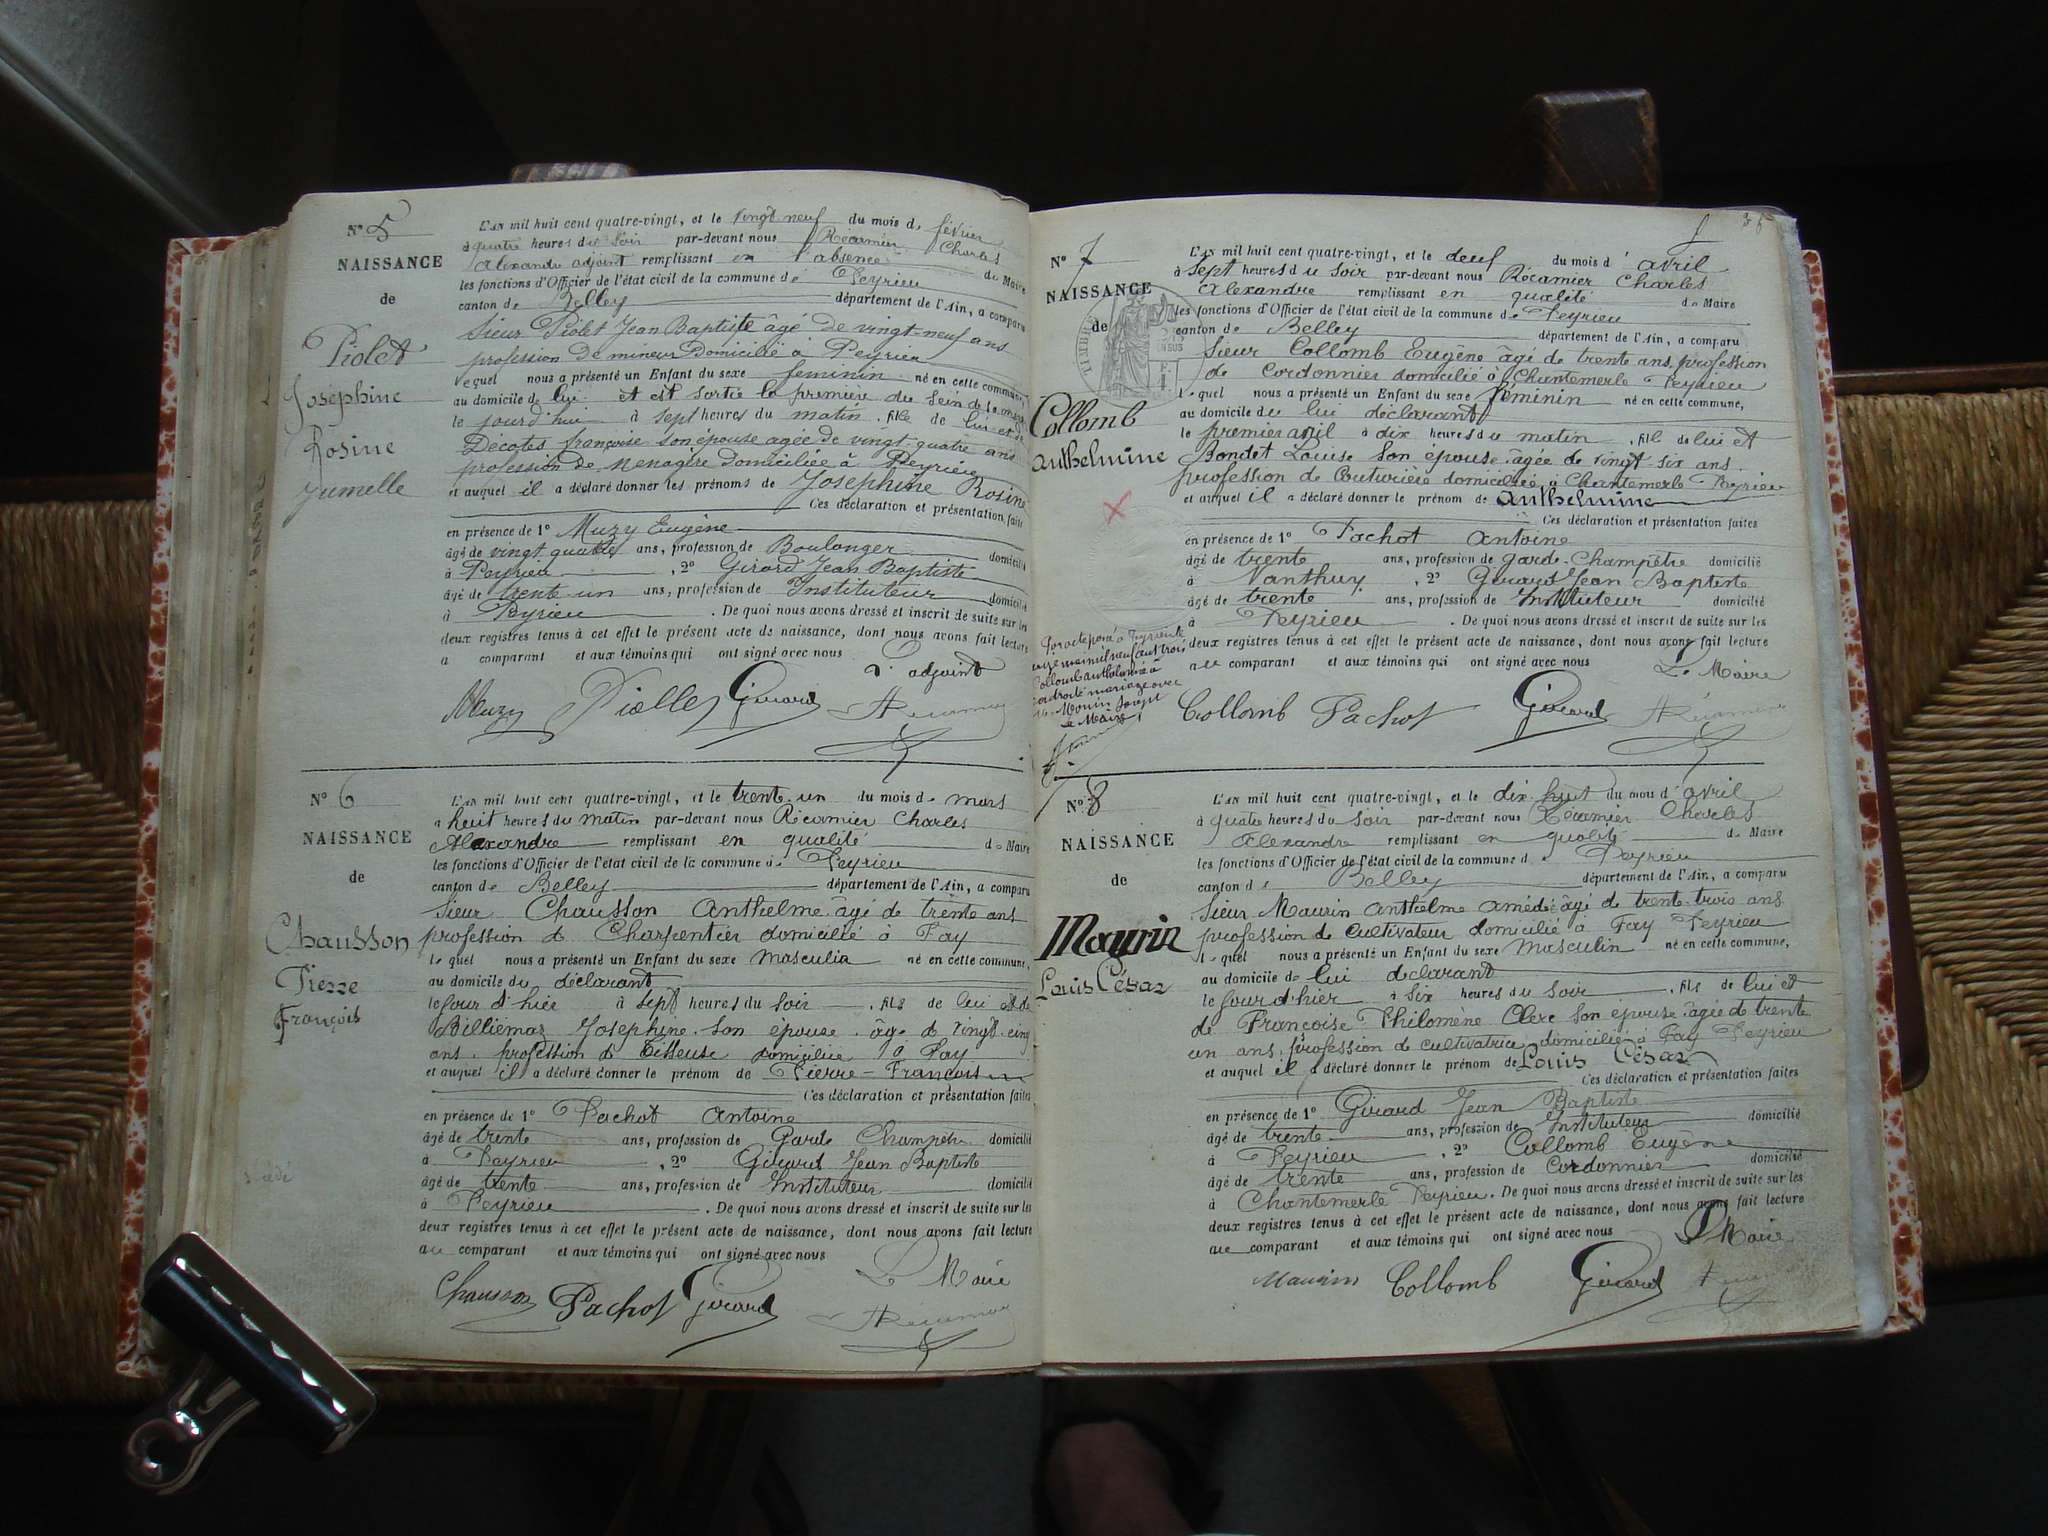 N° 5
NAISSANCE
de
Piolet
Joséphine
Rosine
Jumelle
L'AN mil huit cent quatre-vingt, et le vingt neuf du mois de février
à quatre heures du soir par-devant nous Récamier Charles
Alexandre adjoint remplissant en l'absence du Maire
les fonctions d'Officier de l'état civil de la commune de Peyrieu
canton de Belley département de l'Ain, a comparu
Sieur Piolet Jean Baptiste âgé de vingt-neuf ans
profession de mineur domicilié à Peyrieu
lequel nous a présenté un Enfant du sexe feminin né en cette commune
au domicile de lui et est sortie la première du sein de la mère
le jourd'hui à sept heures du matin, fille de lui et de
Décotes françoise son épouse agée de vingt quatre ans
profession de Menagère domiciliée à Peyrieu
et auquel il a déclaré donner les prénoms de Joséphine Rosine
Ces déclaration et présentation faites
en présence de 1° Muzy Eugène
âgé de vingt quatre ans, profession de Boulanger domicilié
à Peyrieu, 2° Girard Jean Baptiste
âgé de trente un ans, profession de Instituteur domicilié
à Peyrieu. De quoi nous avons dressé et inscrit de suite sur les
deux registres tenus à cet effet le présent acte de naissance, dont nous avons fait lecture
a comparant et aux témoins qui ont signé avec nous
L'adjoint
Muzy Piollet Girard Récamier
N° 6
NAISSANCE
de
Chausson
Pierre
François
L'AN mil huit cent quatre-vingt, et le trente un du mois de mars
à huit heures du matin par-devant nous Récamier Charles
Alexandre remplissant en qualité de Maire
les fonctions d'Officier de l'état civil de la commune de Peyrieu
canton de Belley département de l'Ain, a comparu
Sieur Chausson Anthelme âgé de trente ans
profession de Charpentier domicilié à Fay
lequel nous a présenté un Enfant du sexe masculin né en cette commune,
au domicile du déclarant
le jour d'hier à sept heures du soir, fils de lui et de
Billiemaz Josephine son épouse âgée de vingt cinq
ans, profession de Tisseuse domiciliée à Fay
et auquel il a déclaré donner le prénom de Pierre-François
Ces déclaration et présentation faites
en présence de 1° Pachot Antoine
âgé de trente ans, profession de Garde Champêtre domicilié
à Peyrieu, 2° Girard Jean Baptiste
âgé de trente ans, profession de Instituteur domicilié
à Peyrieu. De quoi nous avons dressé et inscrit de suite sur les
deux registres tenus à cet effet le présent acte de naissance, dont nous avons fait lecture
au comparant et aux témoins qui ont signé avec nous
Le Maire
Chausson Pachot Girard Récamier
N° 7
NAISSANCE
de
Collomb
Anthelmine
L'AN mil huit cent quatre-vingt, et le deux du mois d'avril
à sept heures du soir par-devant nous Récamier Charles
Alexandre remplissant en qualité de Maire
les fonctions d'Officier de l'état civil de la commune de Peyrieu
canton de Belley département de l'Ain, a comparu
Sieur Collomb Eugène âgé de trente ans profession
de Cordonnier domicilié à Chantemerle Peyrieu
lequel nous a présenté un Enfant du sexe feminin né en cette commune,
au domicile de lui déclarant
le premier avril à dix heures du matin, fille de lui et
Bondet Louise son épouse âgée de vingt six ans
profession de Couturière domiciliée à Chantemerle Peyrieu
et auquel il a déclaré donner le prénom de Anthelmine
Ces déclaration et présentation faites
en présence de 1° Pachot Antoine
âgé de trente ans, profession de garde-Champêtre domicilié
à Nanthuy, 2° Girard Jean Baptiste
âgé de trente ans, profession de Instituteur domicilié
à Peyrieu. De quoi nous avons dressé et inscrit de suite sur les
deux registres tenus à cet effet le présent acte de naissance, dont nous avons fait lecture
au comparant et aux témoins qui ont signé avec nous
Le Maire
Collomb Pachot Girard Récamier
Par acte passé à Peyrieu le
mil neuf cent trois
Collomb Anthelmine a
contracté mariage avec
Monin Joseph
Le Maire
N° 8
NAISSANCE
de
Maurin
Louis César
L'AN mil huit cent quatre-vingt, et le dix huit du mois d'avril
à quatre heures du soir par-devant nous Récamier Charles
Alexandre remplissant en qualité de Maire
les fonctions d'Officier de l'état civil de la commune de Peyrieu
canton de Belley département de l'Ain, a comparu
Sieur Maurin Anthelme Amédé âgé de trente trois ans
profession de cultivateur domicilié à Fay Peyrieu
lequel nous a présenté un Enfant du sexe Masculin né en cette commune,
au domicile de lui déclarant
le jour d'hier à six heures du soir, fils de lui et
de Françoise Philomène Clerc son épouse âgée de trente
un ans, profession de cultivatrice domiciliée à Fay Peyrieu
et auquel il a déclaré donner le prénom de Louis César
Ces déclaration et présentation faites
en présence de 1° Girard Jean Baptiste
âgé de trente ans, profession de Instituteur domicilié
à Peyrieu, 2° Collomb Eugène
âgé de trente ans, profession de Cordonnier domicilié
à Chantemerle Peyrieu. De quoi nous avons dressé et inscrit de suite sur les
deux registres tenus à cet effet le présent acte de naissance, dont nous avons fait lecture
au comparant et aux témoins qui ont signé avec nous
Le Maire
Maurin Collomb Girard